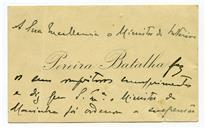 A Sua Excellencia o Ministro do Interior
Pereira Batalha faz
os seus respeitosos cumprimentos
e diz que S. Exª o Ministro da
Marinha já ordenou a suspensão